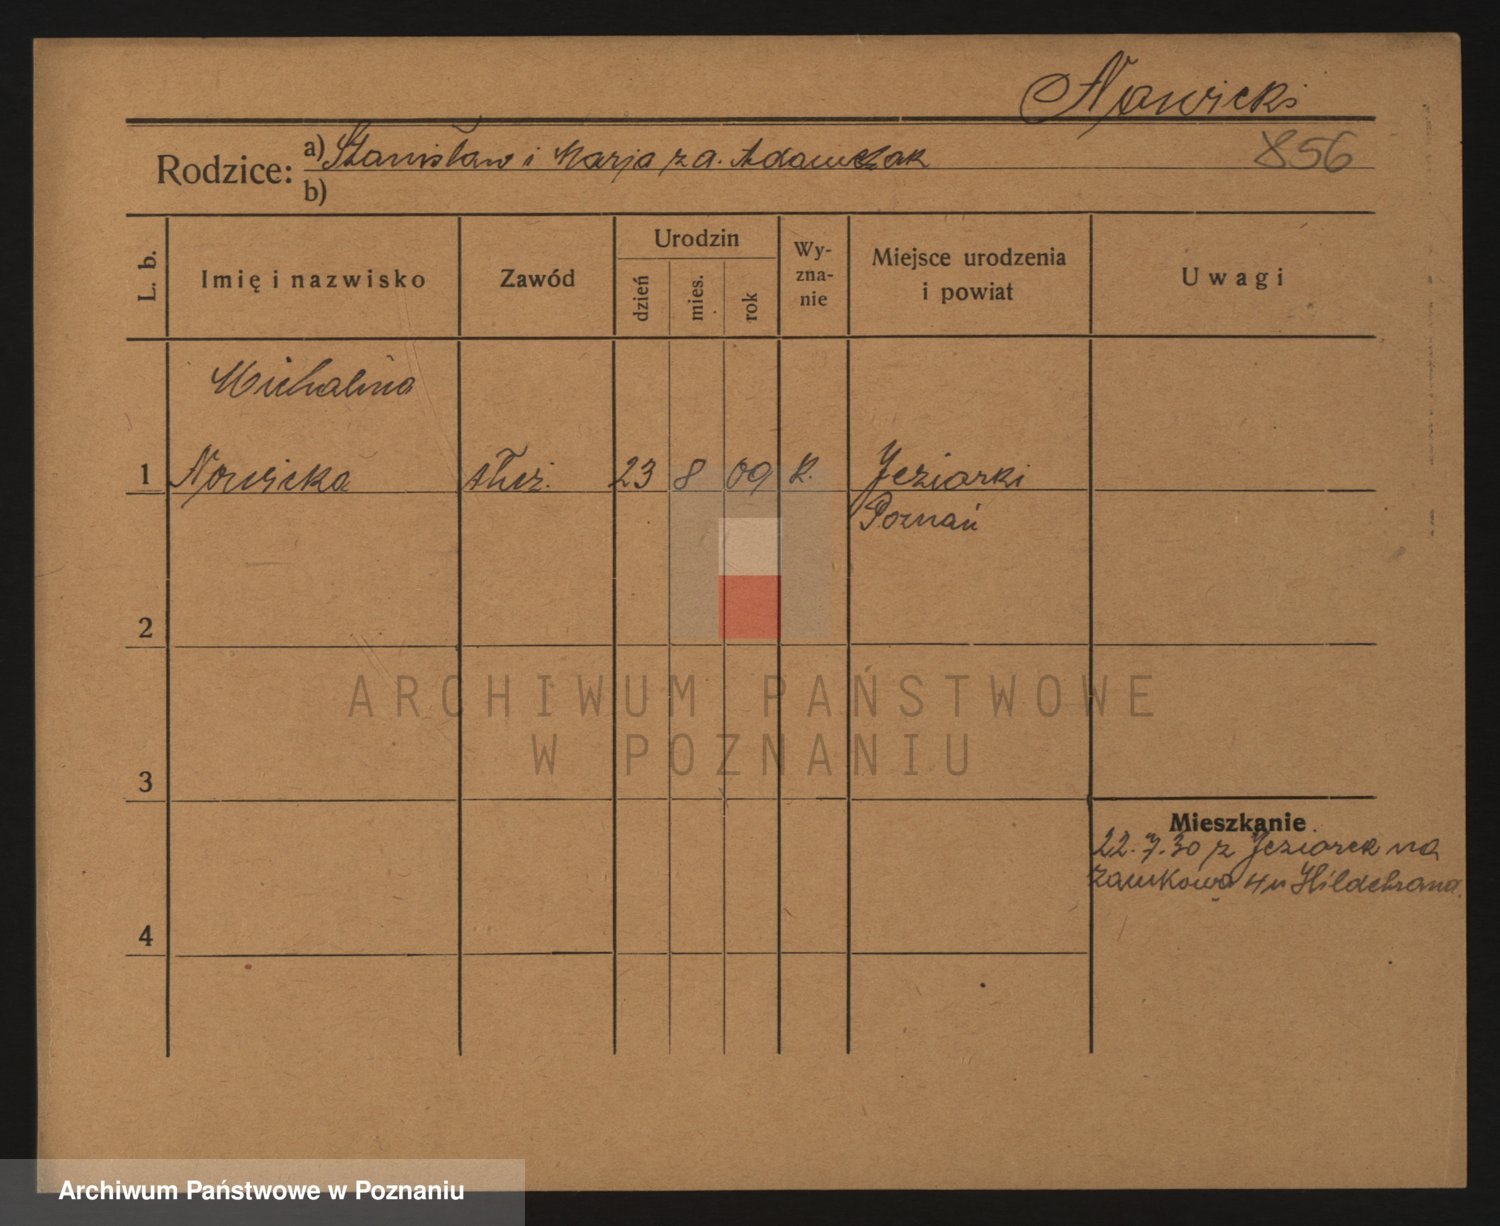 Nowicki
Rodzice: a) Stanisław i Marja z d. Adamczak
856
b)
L. b.
Imię i nazwisko
Zawód
Urodzin
dzień
mies.
rok
Wy-
zna-
nie
Miejsce urodzenia
i powiat
Uwagi
Michalina
1 Nowicka służ. 23 8 09 k. Jeziorki
Poznań
2
3
4
Mieszkanie
22.7.30 z Jeziorek na
Zamkowa 4 u Hildebrana
ARCHIWUM PAŃSTWOWE
W POZNANIU
Archiwum Państwowe w Poznaniu